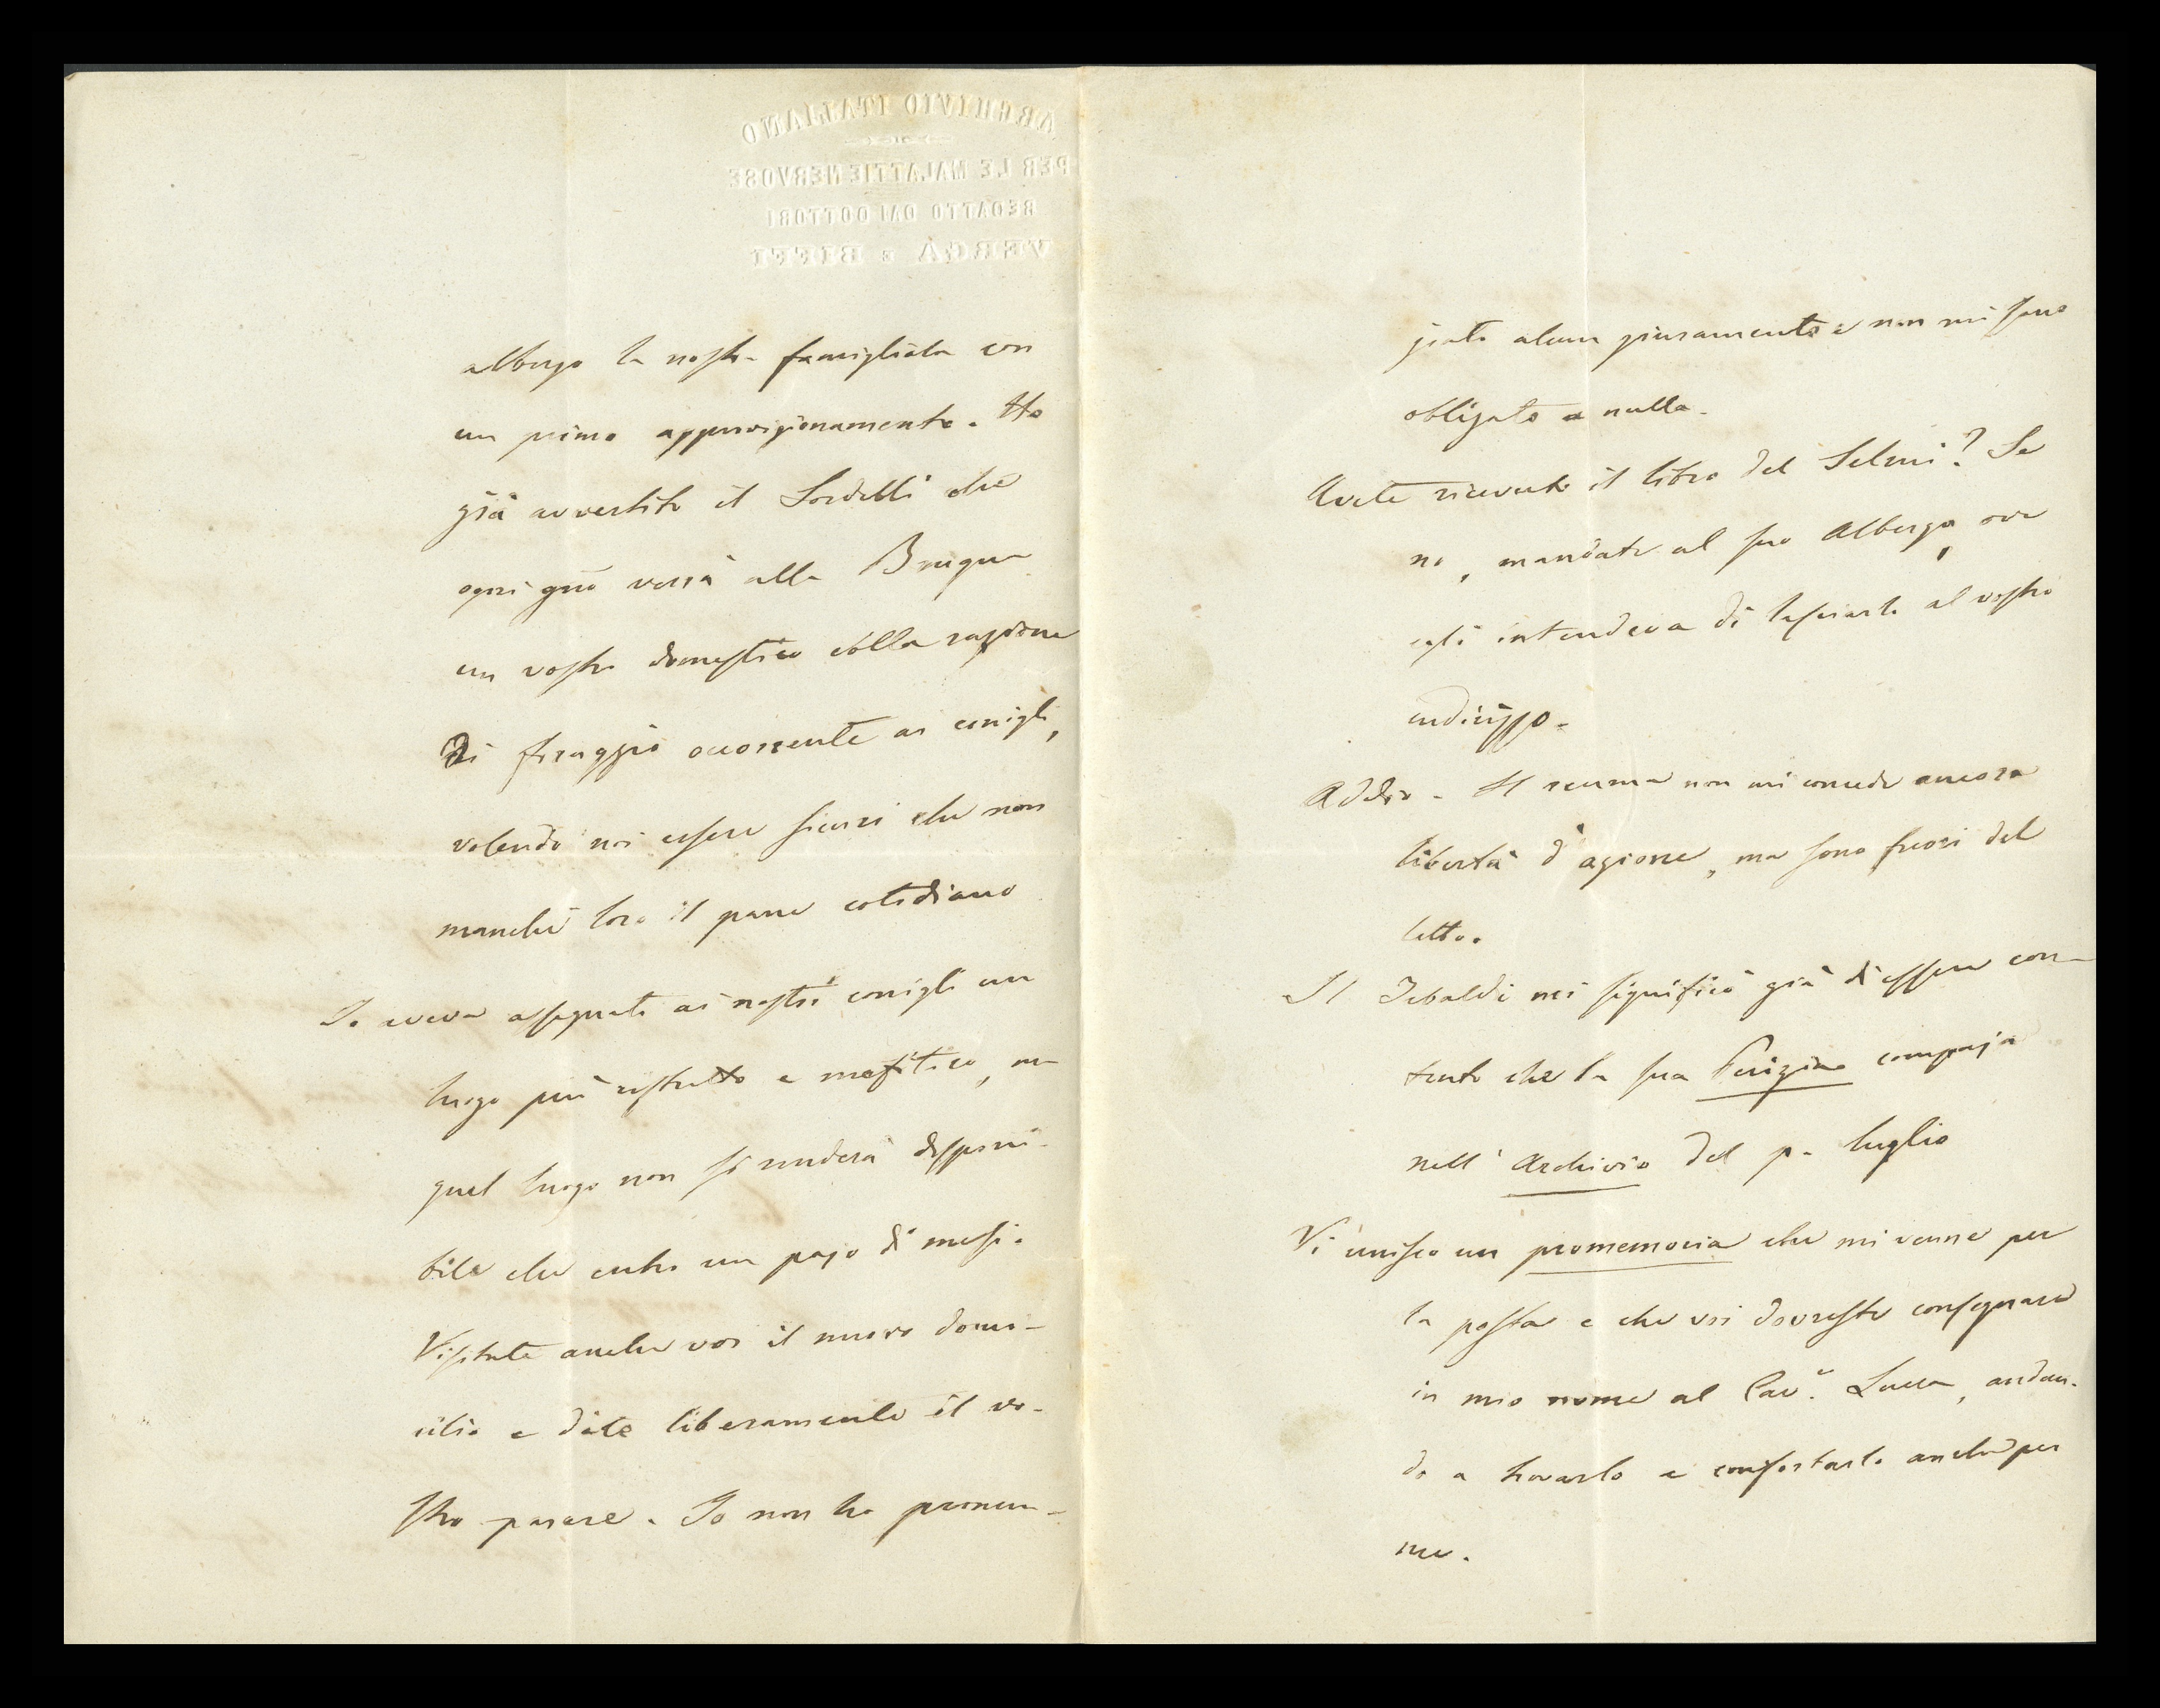 ARCHIVIO ITALIANO
PER LE MALATTIE NERVOSE
REDATTO DAI DOTTORI
VERGA E BIFFI
albergo la nostra famigliola con
un primo approvigionamento. Ho
già avvertito il Sordelli che
ogni gno verrà alla
un vostro domestico colla razione
di foraggio occorrente ai conigli,
volendo noi essere sicuri che non
manchi loro il pane cotidiano
Io aveva assegnato ai nostri conigli un
luogo più ristretto e mefitico, ma
quel luogo non si renderà disponi-
bile che entro un pajo di mesi.
Visitate anche voi il nuovo domi-
cilio e dite liberamente il vo-
stro parere. Io non ho pronun-
ziato alcun giuramento e non mi sono
obligato a nulla.
Avete ricevuto il libro del Selmi? Se
no, mandate al suo Albergo, ove
egli intendeva di lasciarlo al vostro
indirizzo.
Addio. Il reuma non mi concede ancora
libertà d'azione, ma sono fuori del
letto.
Il Tebaldi mi significò già di essere con-
tento che la sua compaja
nell' Archivio del p. luglio
Vi unisco un promemoria che mi venne per
la posta e che voi dovreste consegnare
in mio nome al Cav.e Lucca, andan-
do a trovarlo e confortarlo anche per
me.